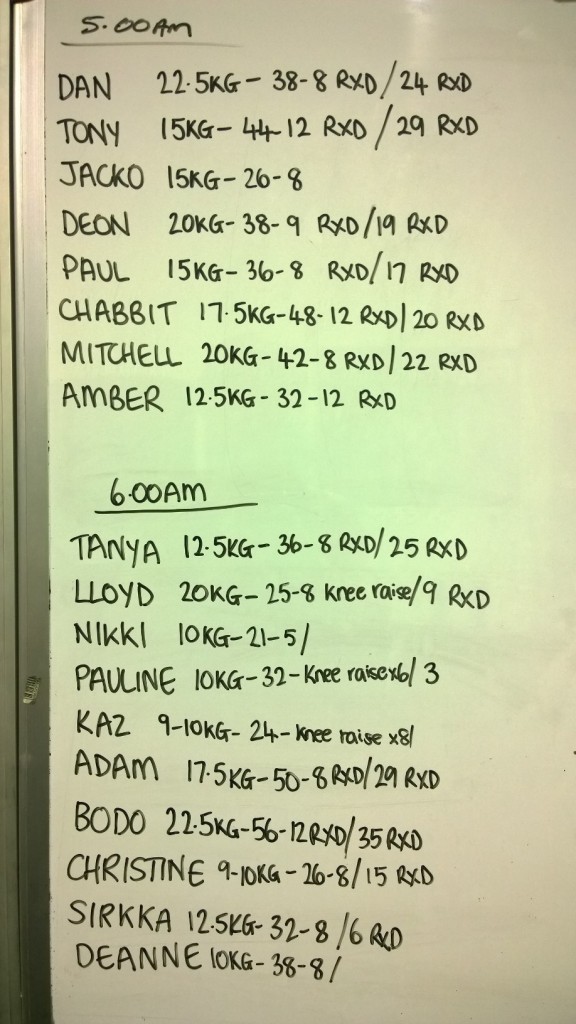 5.00AM
DAN 22.5KG - 38-8 RXD/24 RXD
TONY 15KG - 44-12 RXD/29 RXD
JACKO 15KG - 26-8
DEON 20KG - 38-9 RXD/19 RXD
PAUL 15KG - 36-8 RXD/17 RXD
CHABBIT 17.5KG-48-12 RXD/20 RXD
MITCHELL 20KG-42-8 RXD/22 RXD
AMBER 12.5KG - 32-12 RXD
6.00AM
TANYA 12.5KG - 36-8 RXD/25 RXD
LLOYD 20KG - 25-8 Knee raise/9 RXD
NIKKI 10KG-21-5/
PAULINE 10KG-32-Knee raisex6/ 3
KAZ 9-10KG- 24- Knee raise x8/
ADAM 17.5KG-50-8RXD/29 RXD
BODO 22.5KG-56-12RXD/35RXD
CHRISTINE 9-10KG - 26-8/15 RXD
SIRKKA 12.5KG- 32-8 /6 RXD
DEANNE 10KG- 38-8/